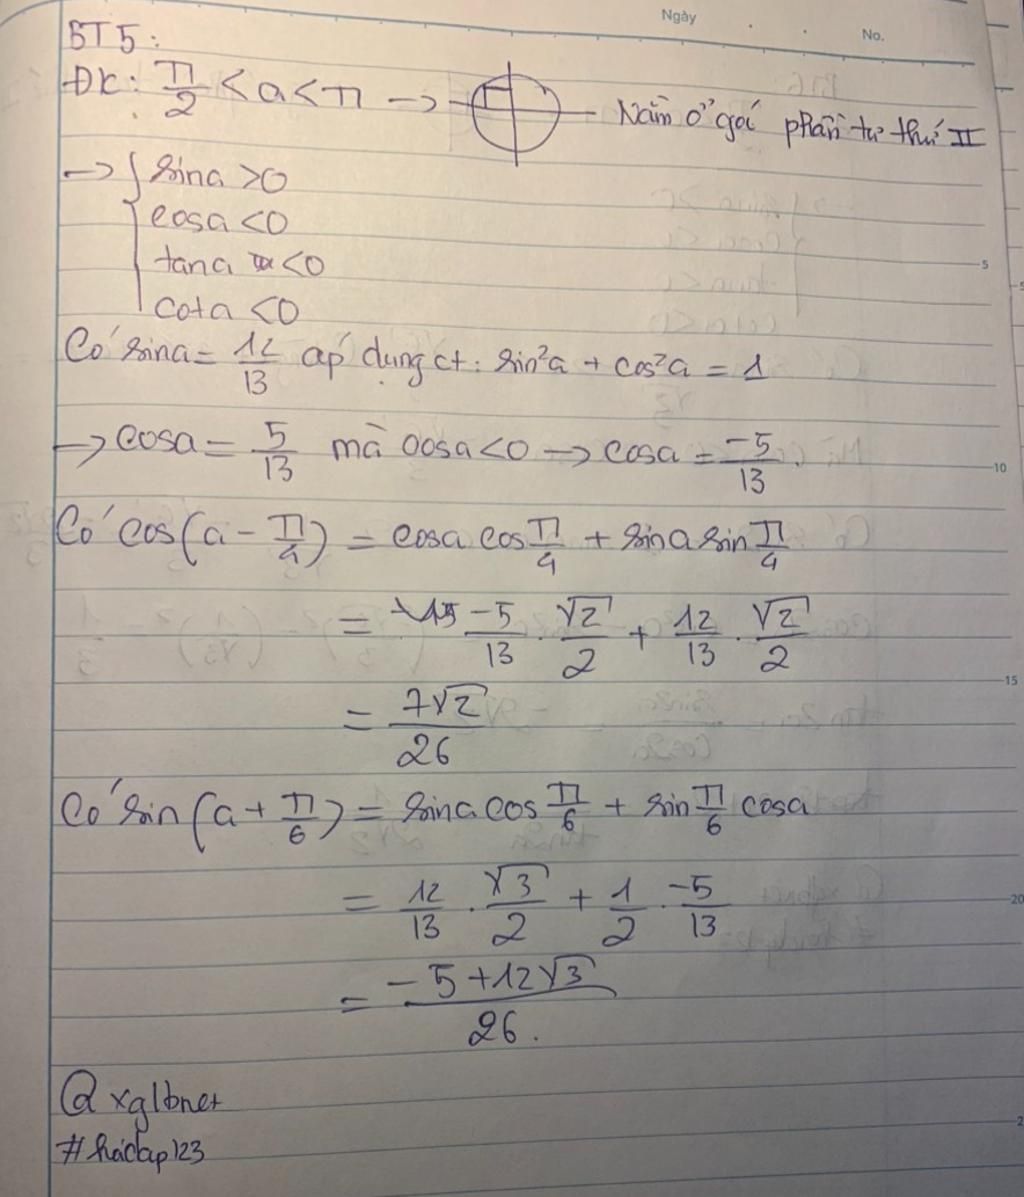 Ngày
No.
BT5:
ĐK: π/2 < a < π → Nằm ở góc phần tư thứ II
→ { sina > 0
cosa < 0
tana < 0
cota < 0
Có sina = 12/13 áp dụng ct: sin²a + cos²a = 1
→ cosa = 5/13 mà cosa < 0 → cosa = -5/13.
Có cos(a - π/4) = cosa cos π/4 + sina sin π/4
= -5/13 . √2/2 + 12/13 . √2/2
= 7√2/26
Có sin(a + π/6) = sina cos π/6 + sin π/6 cosa
= 12/13 . √3/2 + 1/2 . -5/13
= -5+12√3/26.
@xglbnet
#hỏidap123
5
10
15
20